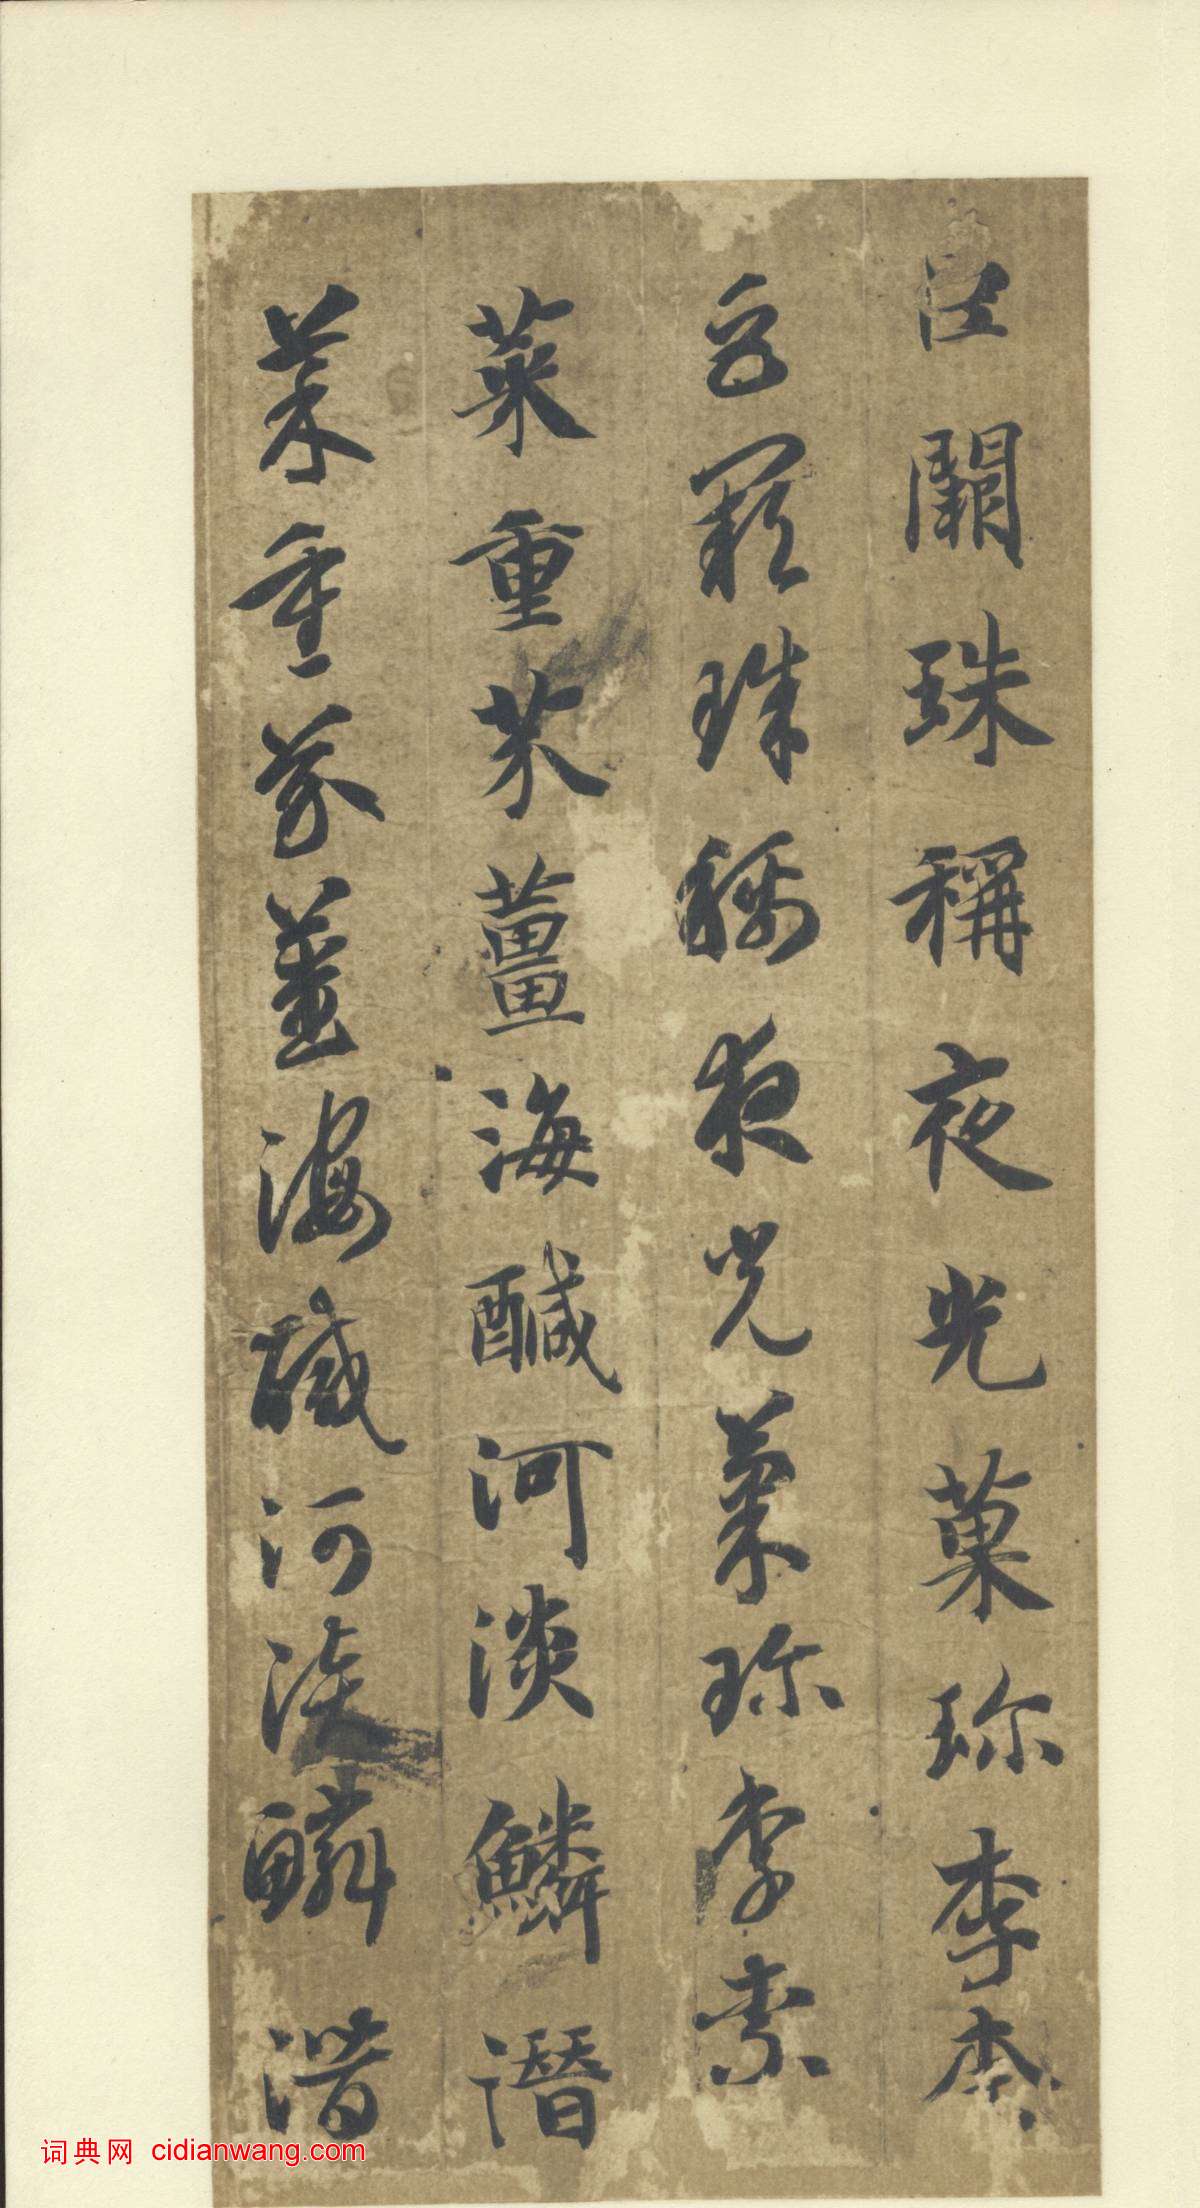 巨闕珠稱夜光菓珎李柰
巨闕珠稱夜光菓珎李柰
菜重芥薑海鹹河淡鱗潛
菜重芥薑海鹹河淡鱗潛
词典网 cidianwang.com